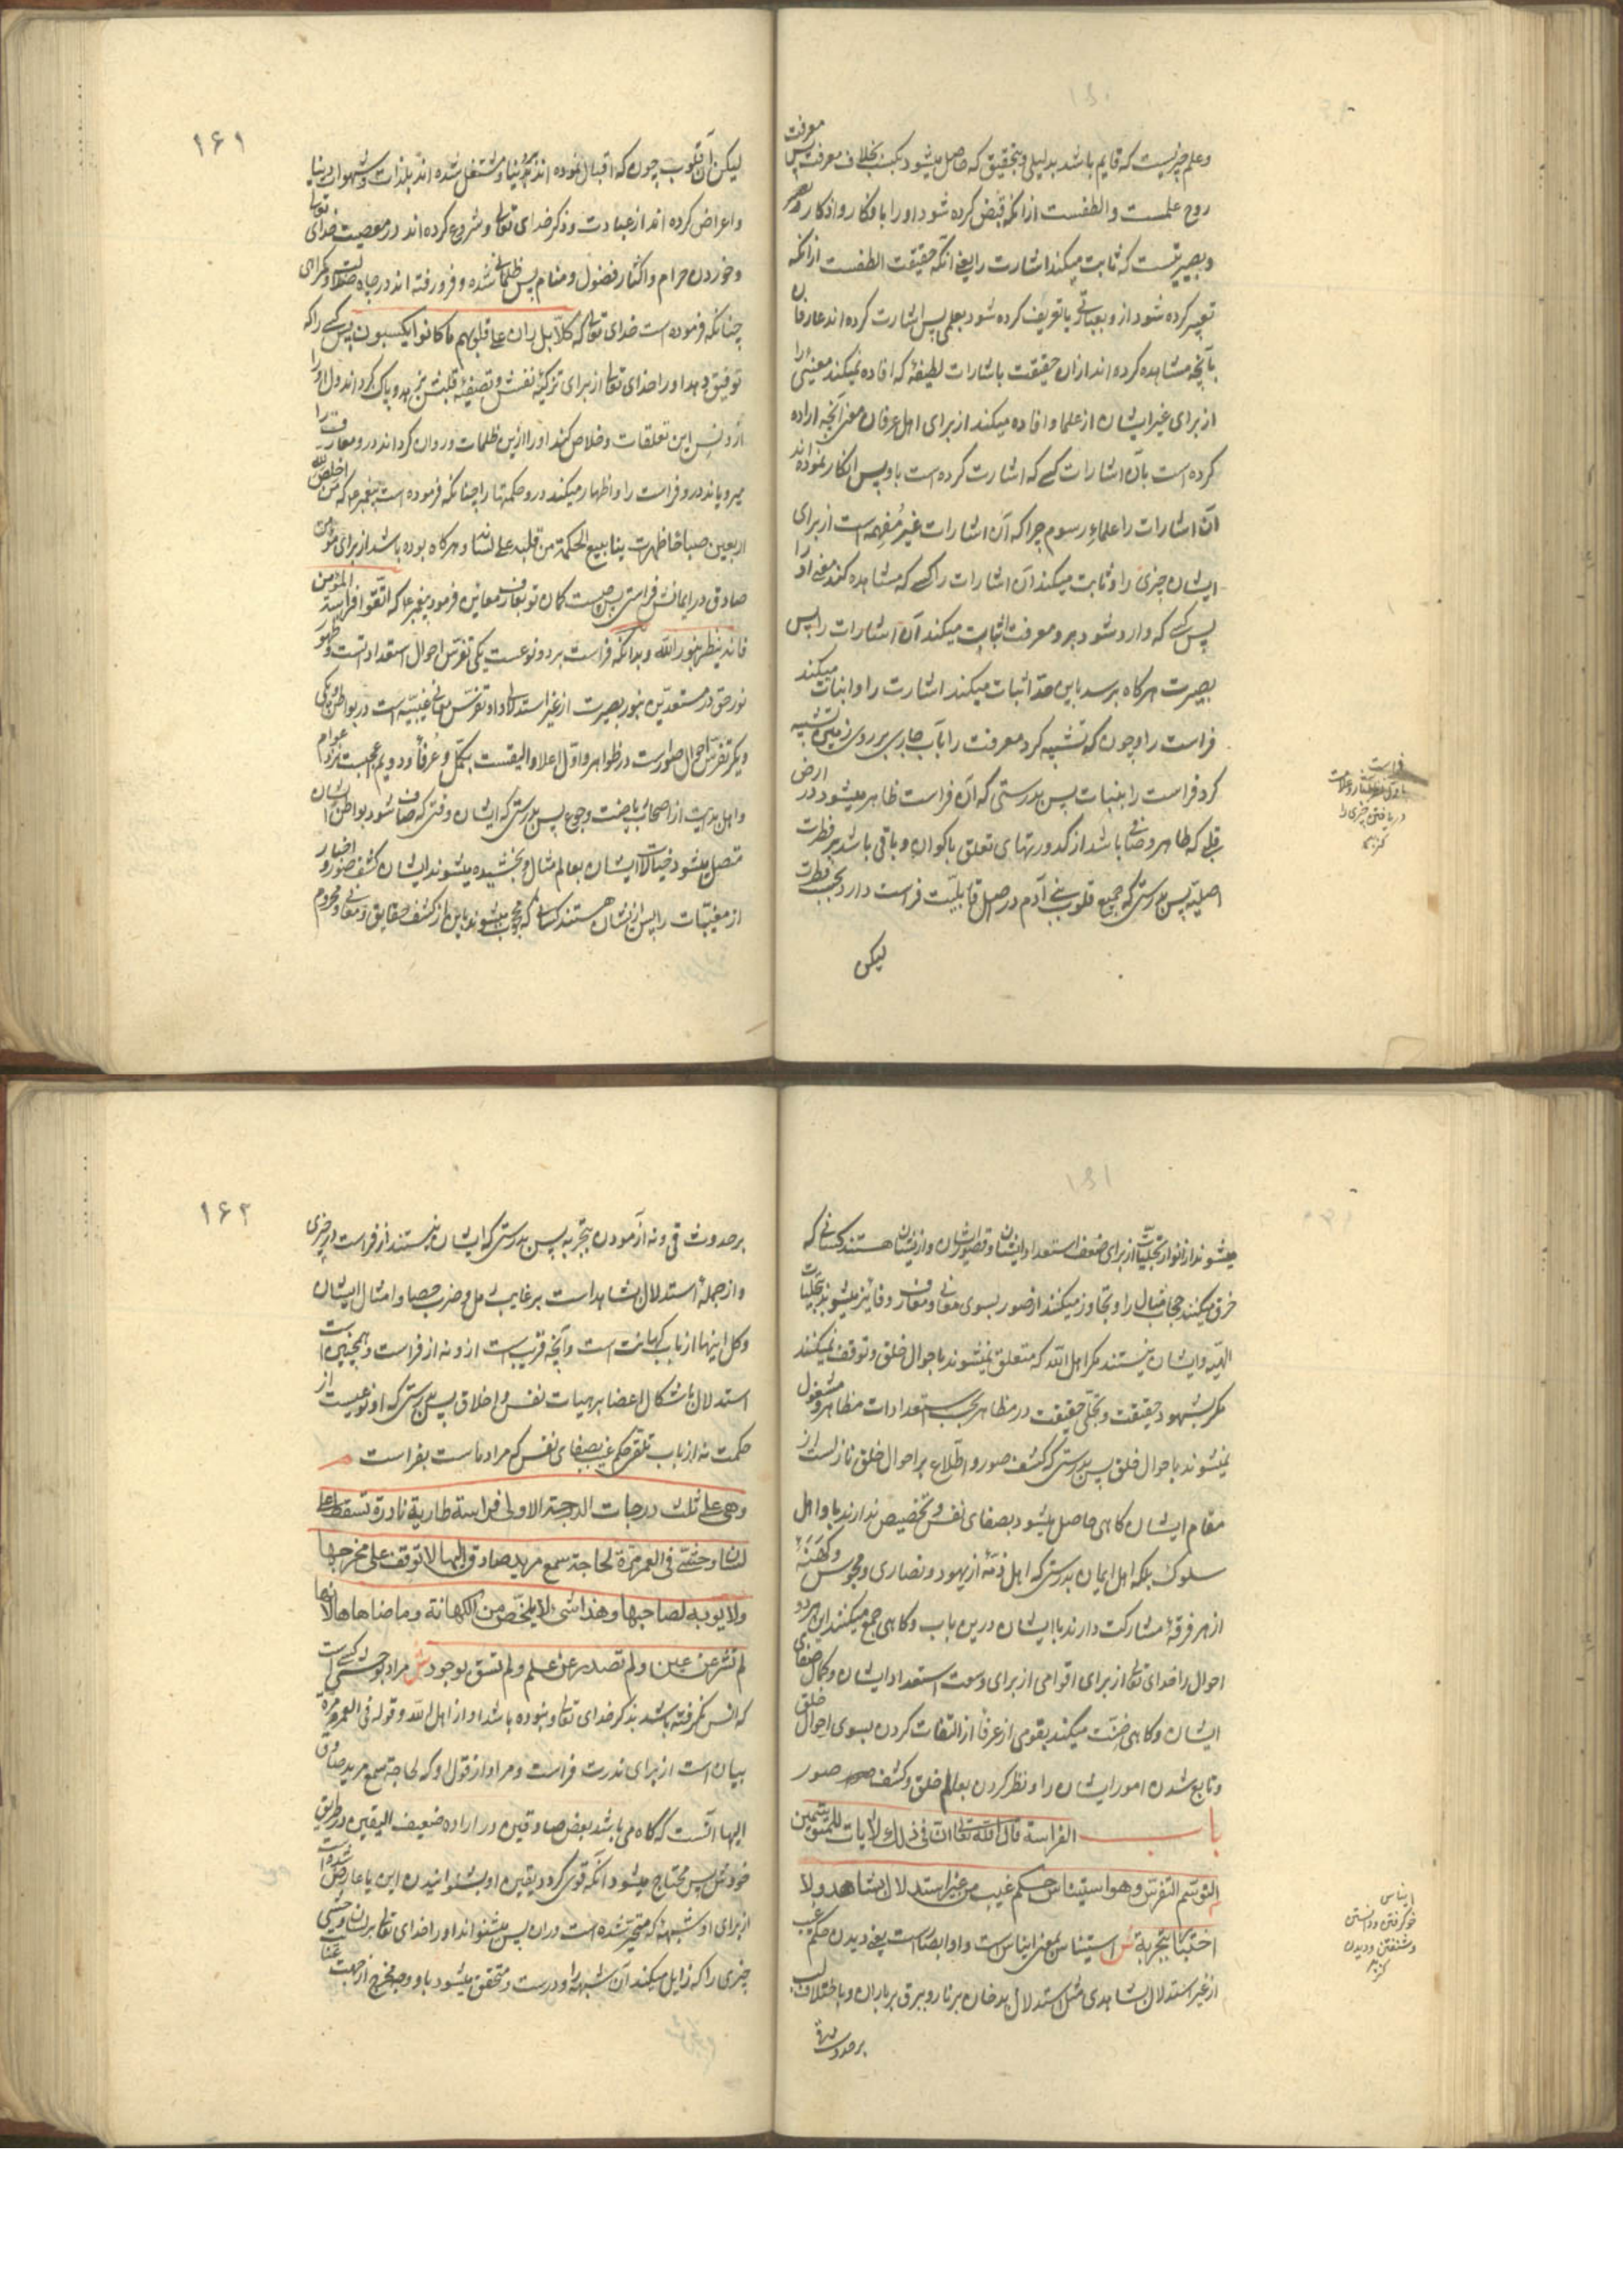 وعلم چیزیست که قایم باشد بدلیلی و بتحقیق که حاصل میشود بکسب بخلاف معرفت پس معرفت
روح علمست والطفست ازانکه قبض کرده شود او را بافکار واذکار
وبصیرتیست که ثابت میکند اشارت را یعنی آنکه حقیقت الطفست ازانکه
تعبیر کرده شود ازو بعبارتی یا تعریف کرده شود بعلمی پس اشارت کرده اند عارفان
بآنچه مشاهده کرده اند ازان حقیقت باشارات لطیفه که افاده نمیکند معنیی را
از برای غیر ایشان از علما وافاده میکند از برای اهل عرفان معنی آنچه اراده
کرده است بآن اشارات کسی که اشارت کرده است باو پس انکار نموده اند
آن اشارات را علماء رسوم چرا که آن اشارات غیر مفهمه است از برای
ایشان چیزی را وثابت میکند آن اشارات را کسی که مشاهده کند معنی او را
پس کسی که وارد شود برو معرفت اثبات میکند آن اشارات را پس
بصیرت هرکاه برسد باین حد اثبات میکند اشارت را وانبات میکند
فراست را وچون که تشبیه کرد معرفت را بآب جاری بر روی زمین تشبیه
کرد فراست را بنبات پس بدرستی که آن فراست ظاهر میشود در ارض
قلبی که طاهر وصافی باشد از کدورتهای تعلق باکوان وباقی باشد بر فطرت
اصلیه پس بدرستی که جمیع قلوب بنی آدم در اصل قابلیت فراست دارد بحسب فطرت
لیکن
فراست
دریافتن چیزی را
کنز
۱۶۱
لیکن آن قلوب چون که اقبال نموده اند بدنیا ومشتغل شده اند بلذات وشهوات دنیا
واعراض کرده اند از عبادت وذکر خدای تعالی وشروع کرده اند در معصیت خدای تعالی
وخوردن حرام واکثار فضول ومنام پس ظلمانی شده وفرو رفته اند در چاه ضلالت وکمراهی
چنانکه فرموده است خدای تعالی که کلا بل ران علی قلوبهم ما کانوا یکسبون پس کسی را که
توفیق دهد او را خدای تعالی از برای تزکیه نفسش وتصفیه قلبش بزهد وپاک کرداند دل او را
از دنس این تعلقات وخلاص کند او را ازین ظلمات وروان کرداند درو معارف را
میرویاند درو فراست را واظهار میکند درو حکمتها را چنانکه فرموده است پیغمبر ما که من اخلص لله
اربعین صباحا ظهرت ینابیع الحکمة من قلبه علی لسانه وهرکاه بوده باشد از برای مؤمن
صادق در ایمانش فراستی پس چیست کمان تو بعارف معاین فرمود پیغمبر ما که اتقوا فراسة المؤمن
فانه ینظر بنور الله وبدانکه فراست بر دو نوعست یکی تفرس احوال استعداداتست وظهور
نور حق در مستعدین بنور بصیرت از غیر استدلال وتفرس معانی غیبیه است در بواطن ویکی
دیکر تفرس احوال صورست در ظواهر واول اعلا والیقست بکمل وعرفا ودویم اعجبست نزد عوام
واهل بدایت از اصحاب ریاضت وجوع پس بدرستی که ایشان وقتی که صاف شود بواطن ایشان
متصل میشود خیالات ایشان بعالم مثال وبخشیده میشوند ایشان کشف صور واخبار
از مغیبات را پس از ایشان هستند کسانی که محجوب میشوند باین از کشف حقایق ومعانی ومحروم
میشوند از انوار تجلیات از برای ضعف استعداد ایشان وقصور ایشان واز ایشان هستند کسانی که
خرق میکنند حجاب خیال را وتجاوز میکنند از صور بسوی معانی ومعارف وفایز میشوند بتجلیات
الهیه وایشان نیستند مکر اهل الله که متعلق نمیشوند باحوال خلق وتوقف نمیکنند
مکر بشهود حقیقت وتجلی حقیقت در مظاهر بحسب استعدادات مظاهر ومشغول
نمیشوند باحوال خلق پس بدرستی که کشف صور واطلاع بر احوال خلق نازلست از
مقام ایشان کاهی حاصل میشود بصفای نفس وتخصیص ندارند باو اهل
سلوک بلکه اهل ایمان بدرستی که اهل ذمه از یهود ونصاری ومجوس وکهنه
از هر فرقه مشارکت دارند با ایشان درین باب وکاهی جمع میکنند این هر دو
احوال را خدای تعالی از برای اقوامی از برای وسعت استعداد ایشان وکمال صفای
ایشان وکاهی ضنت میکند بقومی از عرفا از التفات کردن بسوی احوال خلق
وتابع شدن امور ایشان را ونظر کردن بعالم خلق وکشف صور
باب الفراسة قال الله تعالی ان فی ذلک لآیات للمتوسمین
التوسم التفرس وهو استیناس حکم غیب من غیر استدلال بشاهد ولا
اختبار بتجربة ش استیناس بمعنی ایناس است واو ابصار است یعنی دیدن حکم غیب
از غیر استدلال بشاهدی مثل استدلال بدخان بر نار وببرق بر باران وباختلاف
بر حدوث
ایناس
خو کرفتن ودانستن
وشنفتن ودیدن
کنز
۱۶۲
بر حدوث قی ونه آزمودن بتجربه پس بدرستی که ایشان نیستند از فراست در چیزی
واز جمله استدلال بشاهد است بر غایب رمل وضرب حصا وامثال ایشان
وکل اینها از باب کهانت است وآنچه قریب است ازو نه از فراست وهمچنین است
استدلال باشکال اعضا بر هیات نفس واخلاق پس بدرستی که او نوعیست از
حکمت نه از باب تلقی حکم غیب بصفای نفس که مراد ماست بفراست
وهی علی ثلث درجات الدرجة الاولی فراسة طاریة نادرة تسقط علی
لسان وحشی فی العمر مرة لحاجة سمع مرید صادق الیها لا توقف علی مخرجها
ولا یوبه لصاحبها وهذا شیء لا یلخص من الکهانة وما ضاهاها لانها
لم تشر عن عین ولم تصدر عن علم ولم تسق بوجود ش مراد بوحشی کسی است
که انس نکرفته باشد بذکر خدای تعالی ونبوده باشد او از اهل الله وقوله فی العمر مرة
بیان است از برای ندرت فراست ومراد از قول او که لحاجة سمع مرید صادق
الیها آنست که کاه می باشد بعض صادقین در اراده ضعیف الیقین در طریق
خودش پس محتاج میشود آنکه قوی کردد یقین او بشنوانیدن
از برای او شبهه که متحیر شده است دران پس میشنواند او را خدای تعالی بر لسان وحشی
چیزی را که زایل میکند آن شبهه را ودرست ومتحقق میشود باو ووجه مخرج از جهت